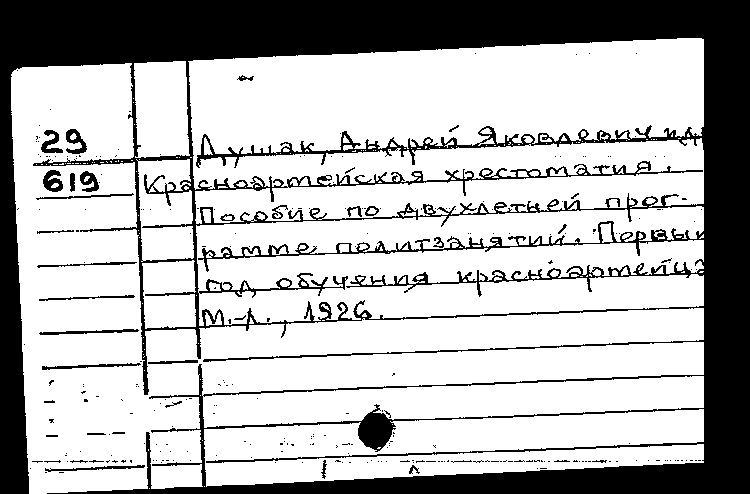 29
Душак, Андрей Яковлевич и др
619
Красноармейская хрестоматия.
Пособие по двухлетней прог-
рамме политзанятий. Первый
год обучения красноармейца
М.-Л., 1926.